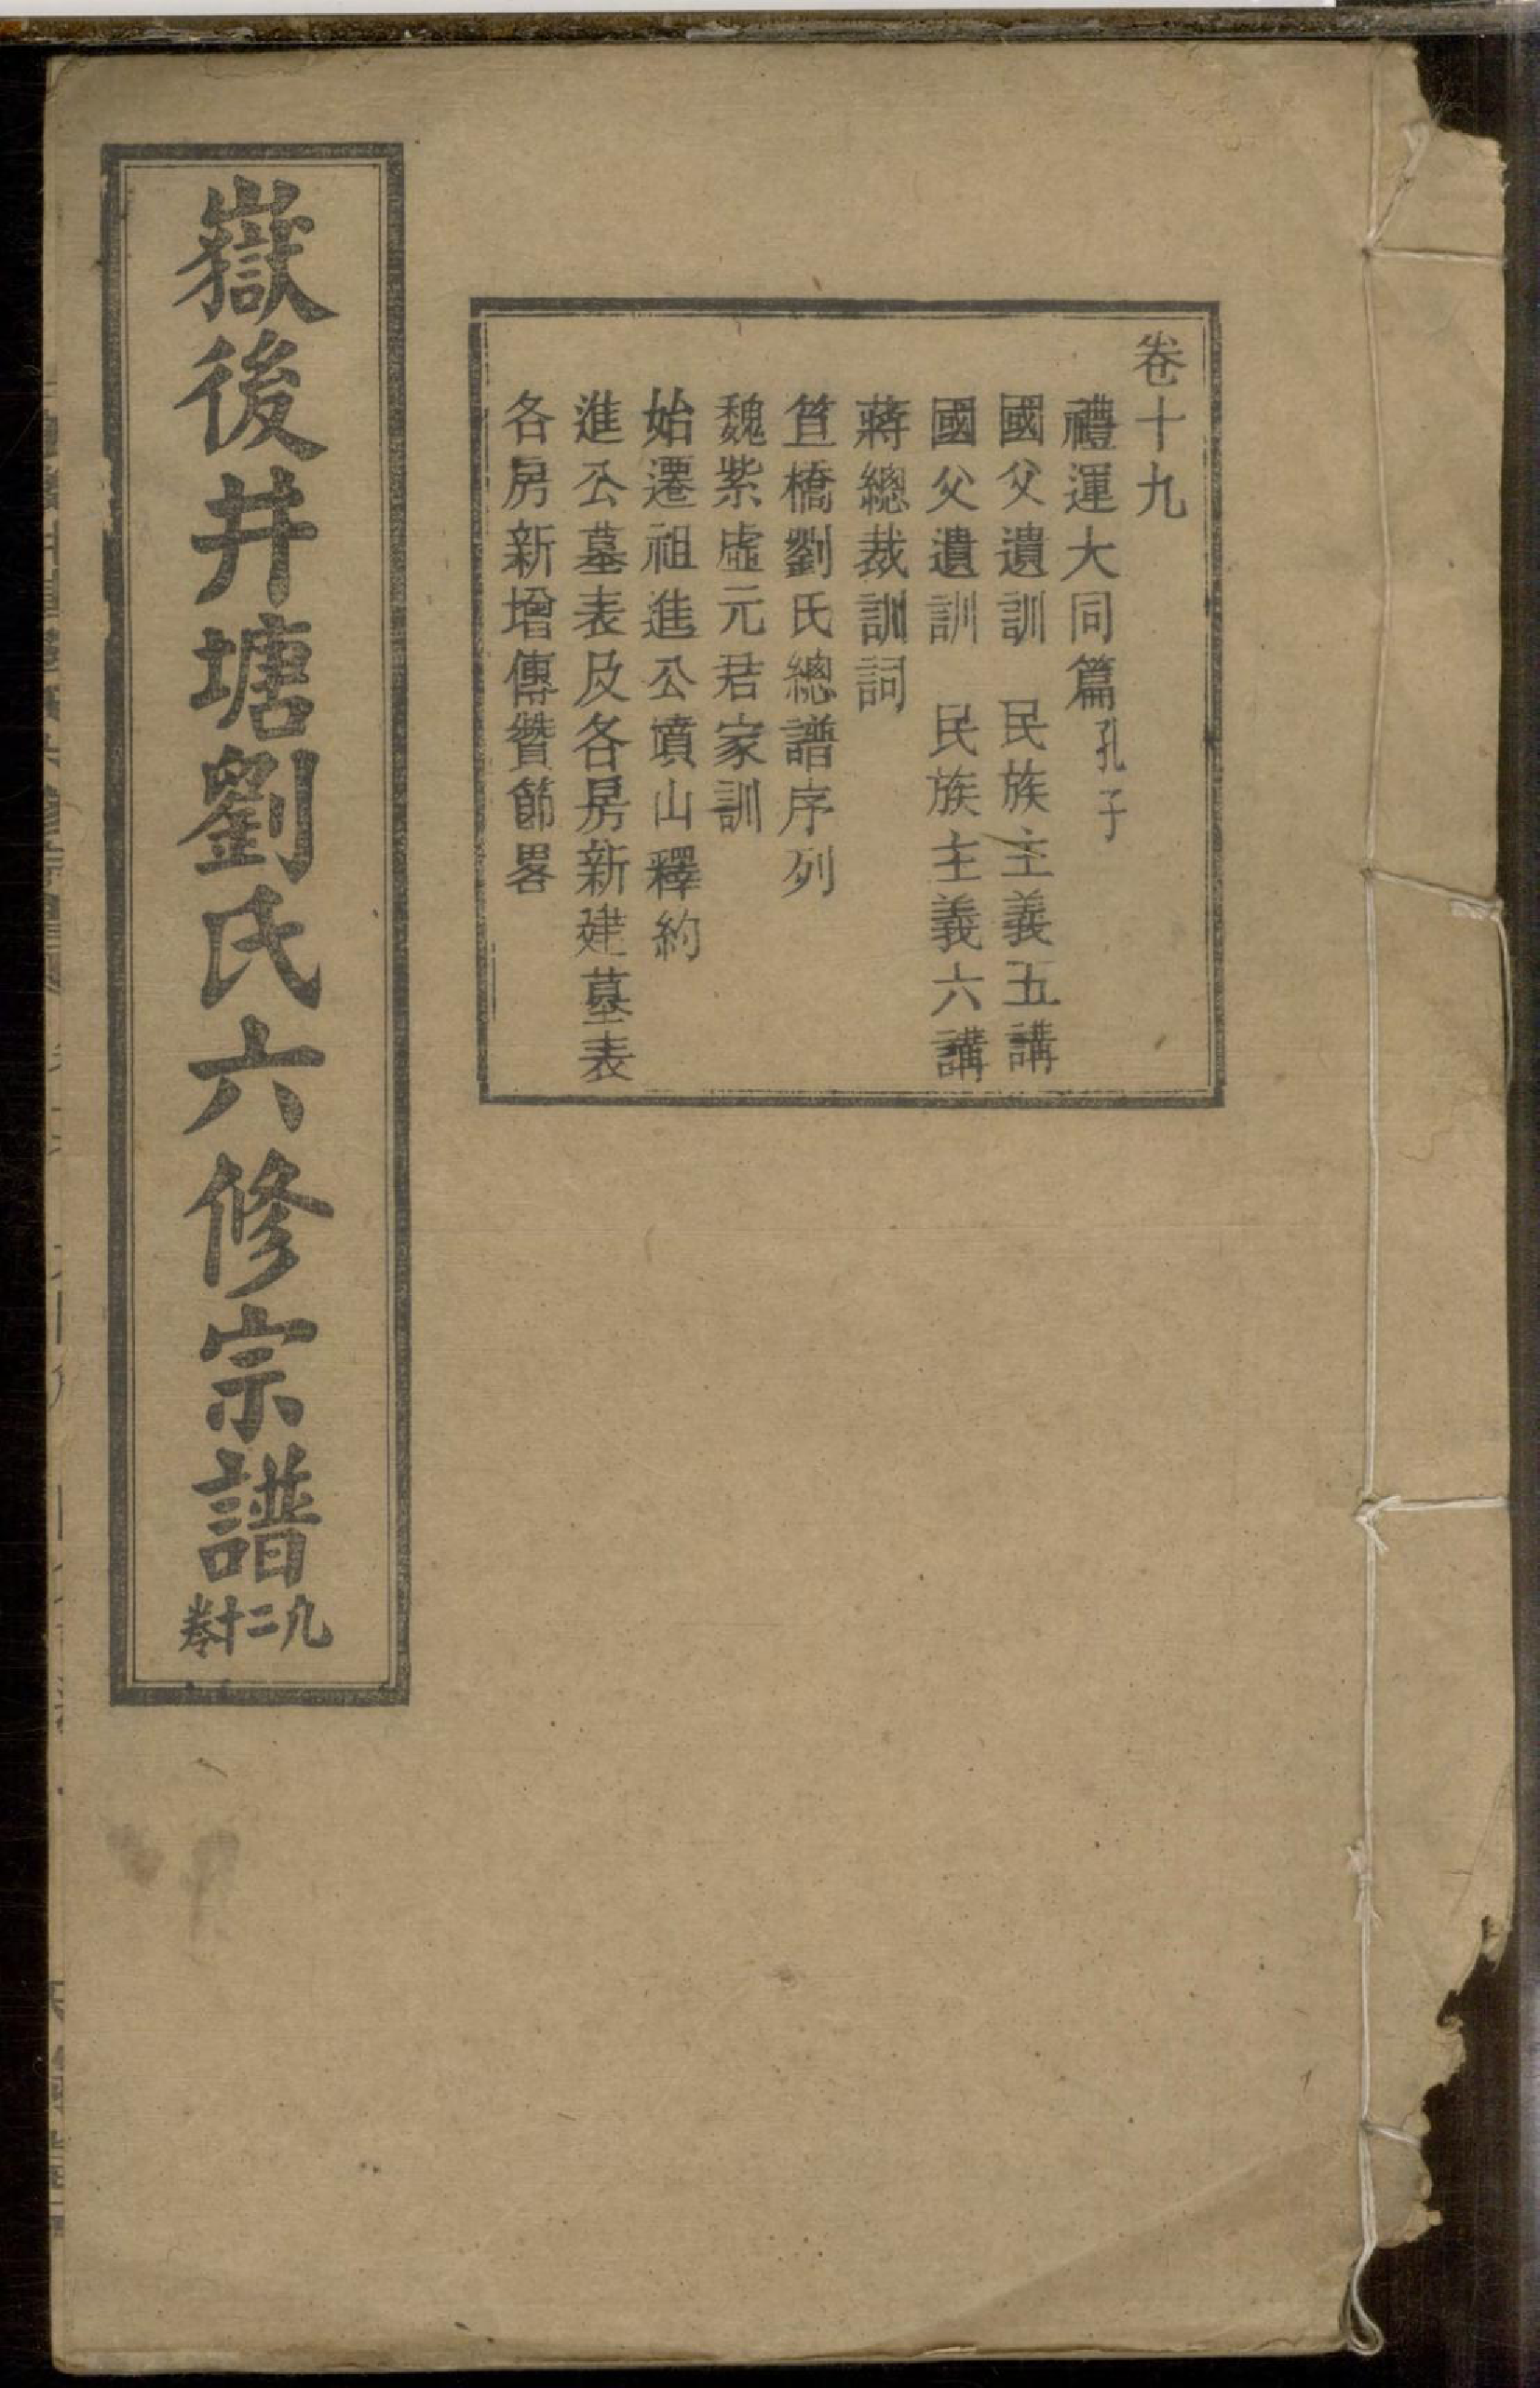 卷十九
禮運大同篇孔子
國父遺訓 民族主義五講
國父遺訓 民族主義六講
蔣總裁訓詞
笪橋劉氏總譜序列
魏紫虛元君家訓
始遷祖進公墳山釋約
進公墓表及各房新建墓表
各房新增傳贊節畧
嶽後井塘劉氏六修宗譜
卷十二九